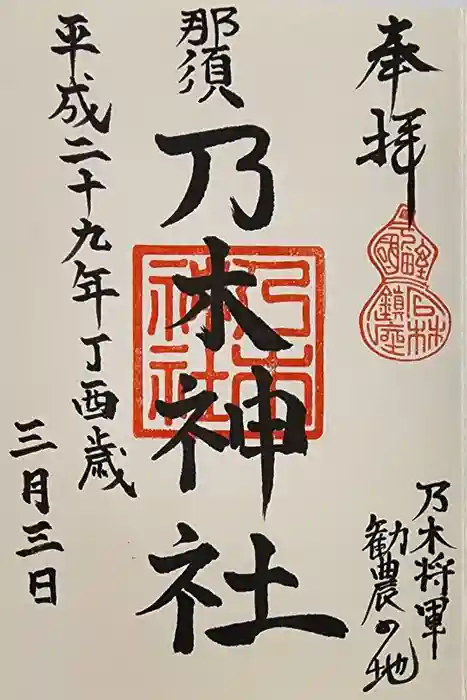 奉拝
乃木将軍
勧農の地
那須
乃木神社
乃木
神社
石林
鎮座
平成二十九年丁酉歳
三月三日